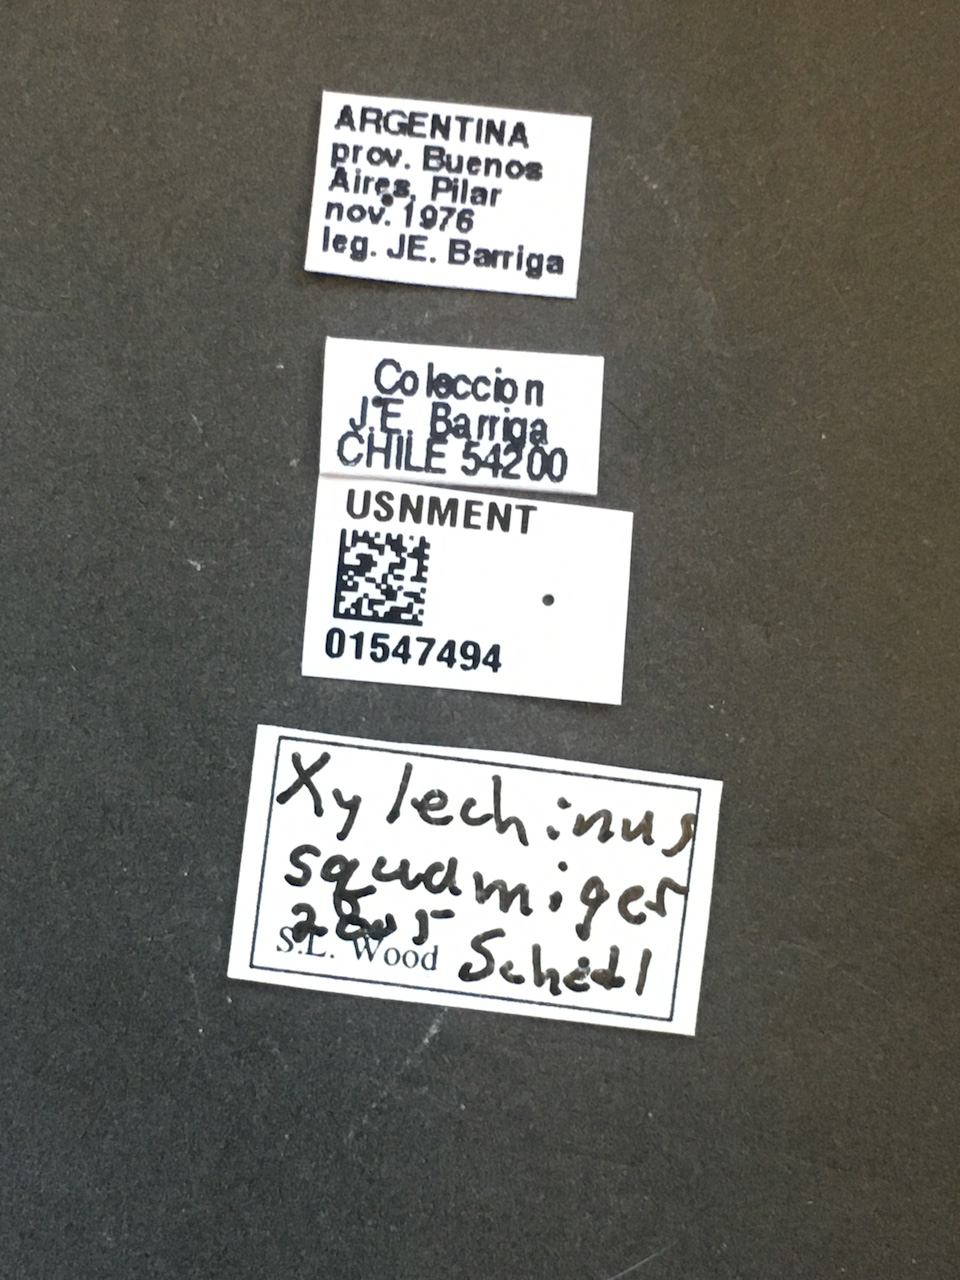 ARGENTINA
prov. Buenos
Aires, Pilar
nov. 1976
leg. JE. Barriga
Coleccion
J.E. Barriga
CHILE 54200
USNMENT
01547494
Xylechinus
squamiger
2005
S.L. Wood Schedl